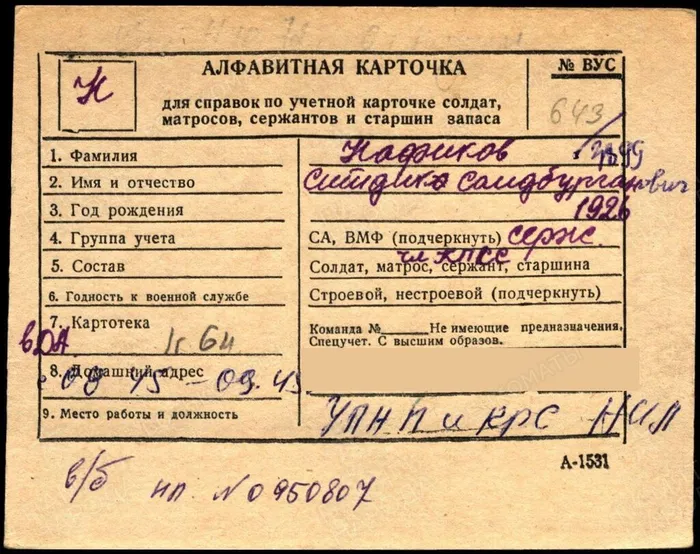 Н
АЛФАВИТНАЯ КАРТОЧКА
№ ВУС
для справок по учетной карточке солдат,
матросов, сержантов и старшин запаса
643
1. Фамилия
Нафиков
2. Имя и отчество
Ситдик Саидбурганович
3. Год рождения
1926
4. Группа учета
СА, ВМФ (подчеркнуть) серж
чл КПСС
5. Состав
Солдат, матрос, сержант, старшина
6. Годность к военной службе
Строевой, нестроевой (подчеркнуть)
7. Картотека
64
Команда № Не имеющие предназначения,
Спецучет. С высшим образов.
8. Домашний адрес
9. Место работы и должность
УПНП и КРС
А-1531
в/б нп. № 0950807